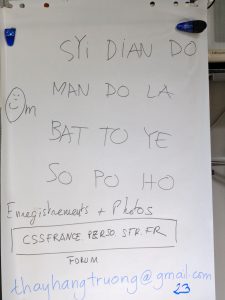 SYi DIAN DO
MAN DO LA
m
BAT TO YE
SO PO HO
Enregistrements + Photos
CSSFRANCE.PERSO.SFR.FR
FORUM
thayhangtruong@gmail.com
23